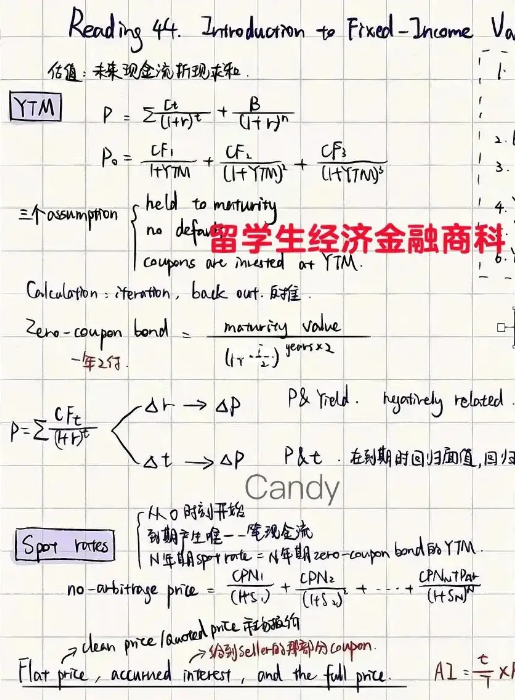 Reading 44. Introduction to Fixed-Income Va
估值: 未来现金流折现求和.
YTM
P = Σ Ct/(1+r)^t + B/(1+r)^n
P₀ = CF₁/(1+YTM) + CF₂/(1+YTM)² + CF₃/(1+YTM)³
三个assumption
held to maturity
no defau
coupons are invested at YTM.
留学生经济金融商科
1.
2.
3.
4.
6.
Calculation: iteration, back out. 反推.
Zero-coupon bond = maturity value/(1+i/2)^(years×2)
一年2付.
P=Σ CFt/(1+r)^t
Δr → ΔP P&Yield. negatively related.
Δt → ΔP P&t. 在到期时回归面值,回归
Candy
Spot rates
从0时刻开始
到期产生唯一一笔现金流
N年期spot rate = N年期zero-coupon bond的YTM.
no-arbitrage price = CPN₁/(1+S₁) + CPN₂/(1+S₂)² + ··· + CPN_N+Par/(1+S_N)^N
clean price/quoted price
给到seller的那部分coupon.
Flat price, accurned interest, and the full price.
AI = t/T ×